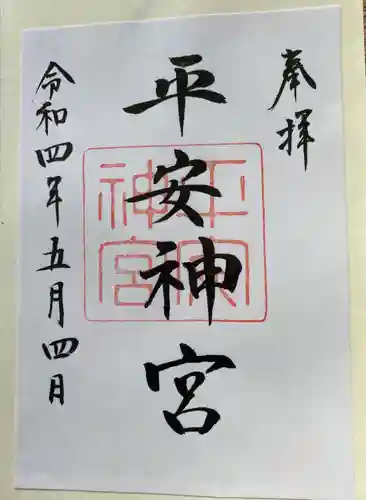 奉拝
平安神宮
令和四年五月四日
平安神宮